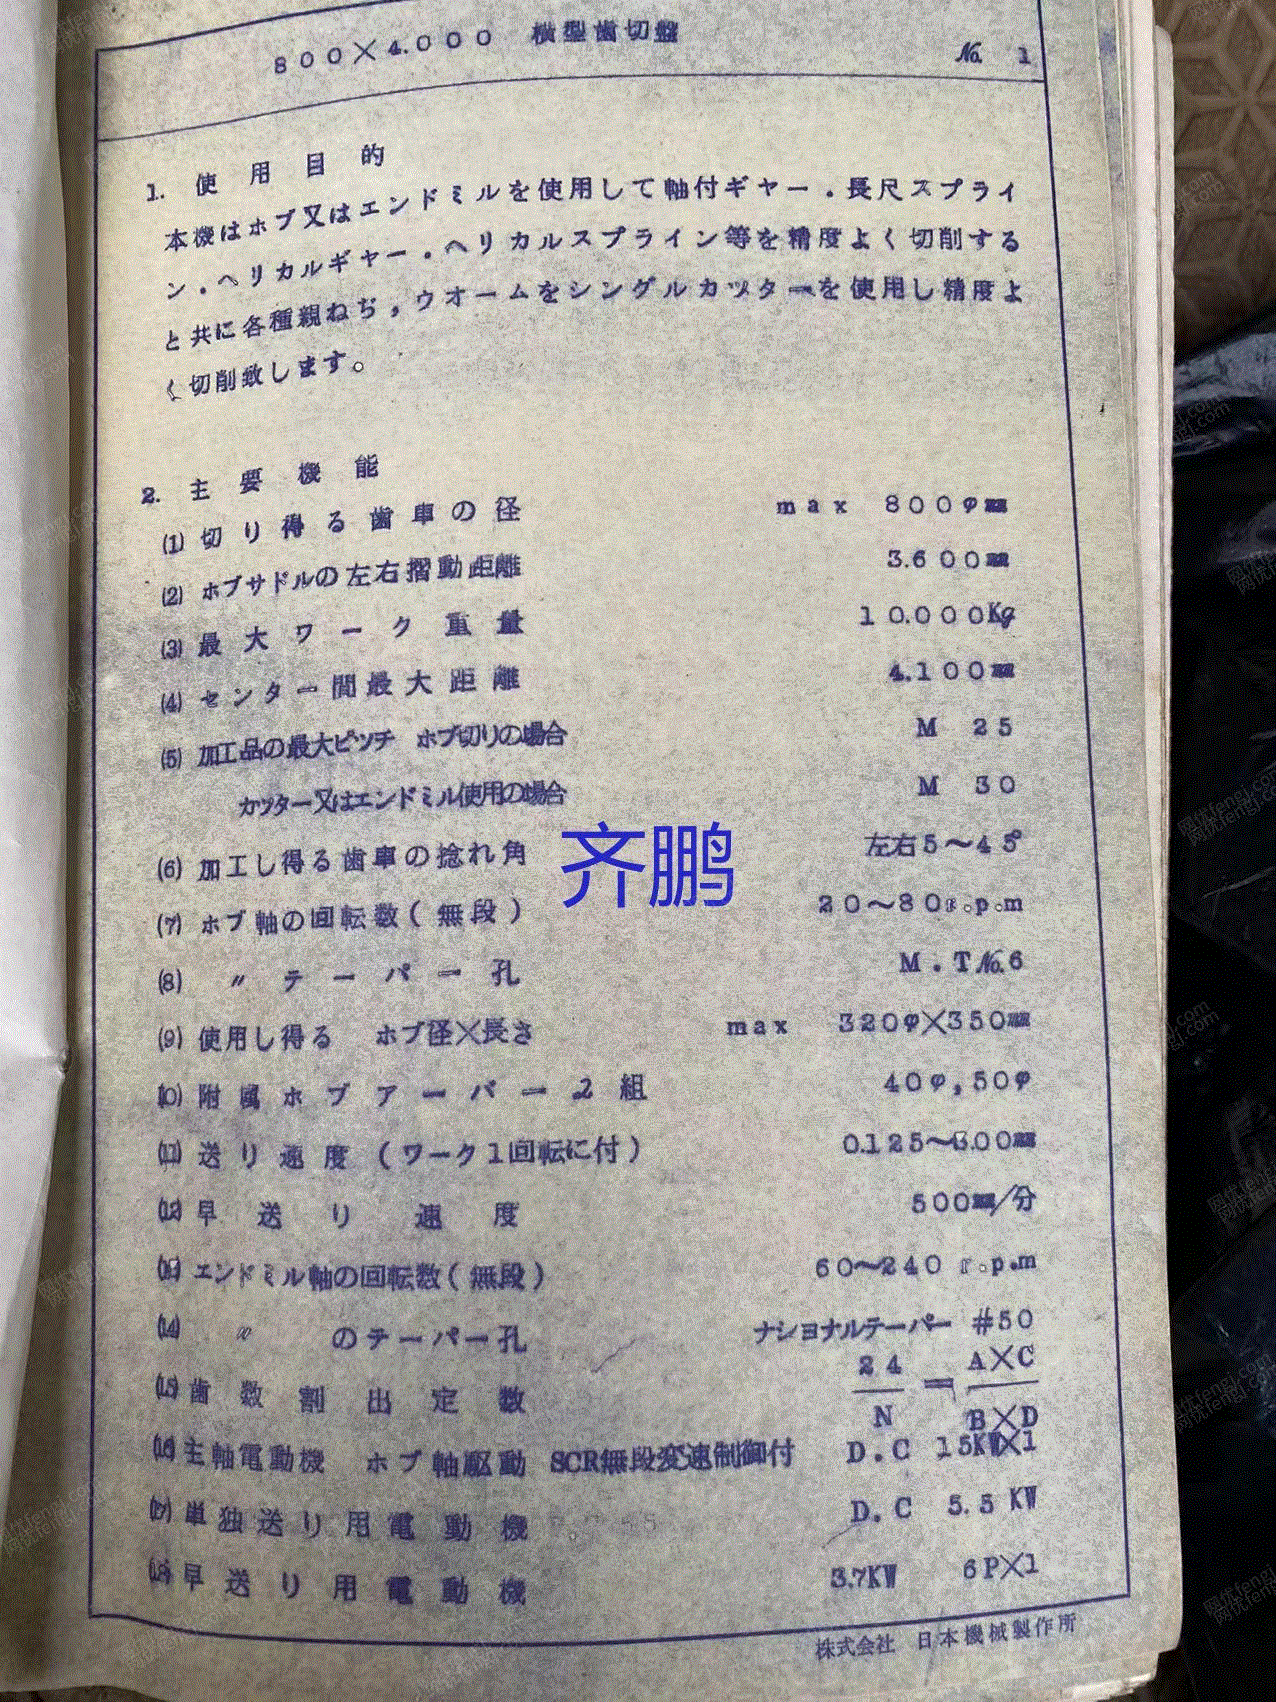 800×4.000 横型歯切盤
№ 1
1. 使用目的
本機はホブ又はエンドミルを使用して軸付ギヤー.長尺スプライ
ン.ヘリカルギヤー.ヘリカルスプライン等を精度よく切削する
と共に各種親ねぢ,ウオームをシングルカッターを使用し精度よ
く切削致します。
2. 主要機能
(1) 切り得る歯車の径 max 800φ㎜
(2) ホブサドルの左右摺動距離 3.600㎜
(3) 最大ワーク重量 10.000Kg
(4) センター間最大距離 4.100㎜
(5) 加工品の最大ピッチ ホブ切りの場合 M 25
カッター又はエンドミル使用の場合 M 30
(6) 加工し得る歯車の捻れ角 左右5～45°
(7) ホブ軸の回転数(無段) 20～80r.p.m
(8) 〃 テーパー孔 M.T№6
(9) 使用し得る ホブ径×長さ max 320φ×350㎜
(10) 附属ホブアーバー2組 40φ,50φ
(11) 送り速度(ワーク1回転に付) 0.125～3.00㎜
(12) 早送り速度 500㎜/分
(13) エンドミル軸の回転数(無段) 60～240 r.p.m
(14) 〃 のテーパー孔 ナショナルテーパー #50
(15) 歯数割出定数 24/N = A×C/B×D
(16) 主軸電動機 ホブ軸駆動 SCR無段変速制御付 D.C 15KW×1
(17) 単独送り用電動機 D.C 5.5KW
(18) 早送り用電動機 3.7KW 6P×1
株式会社 日本機械製作所
齐鹏